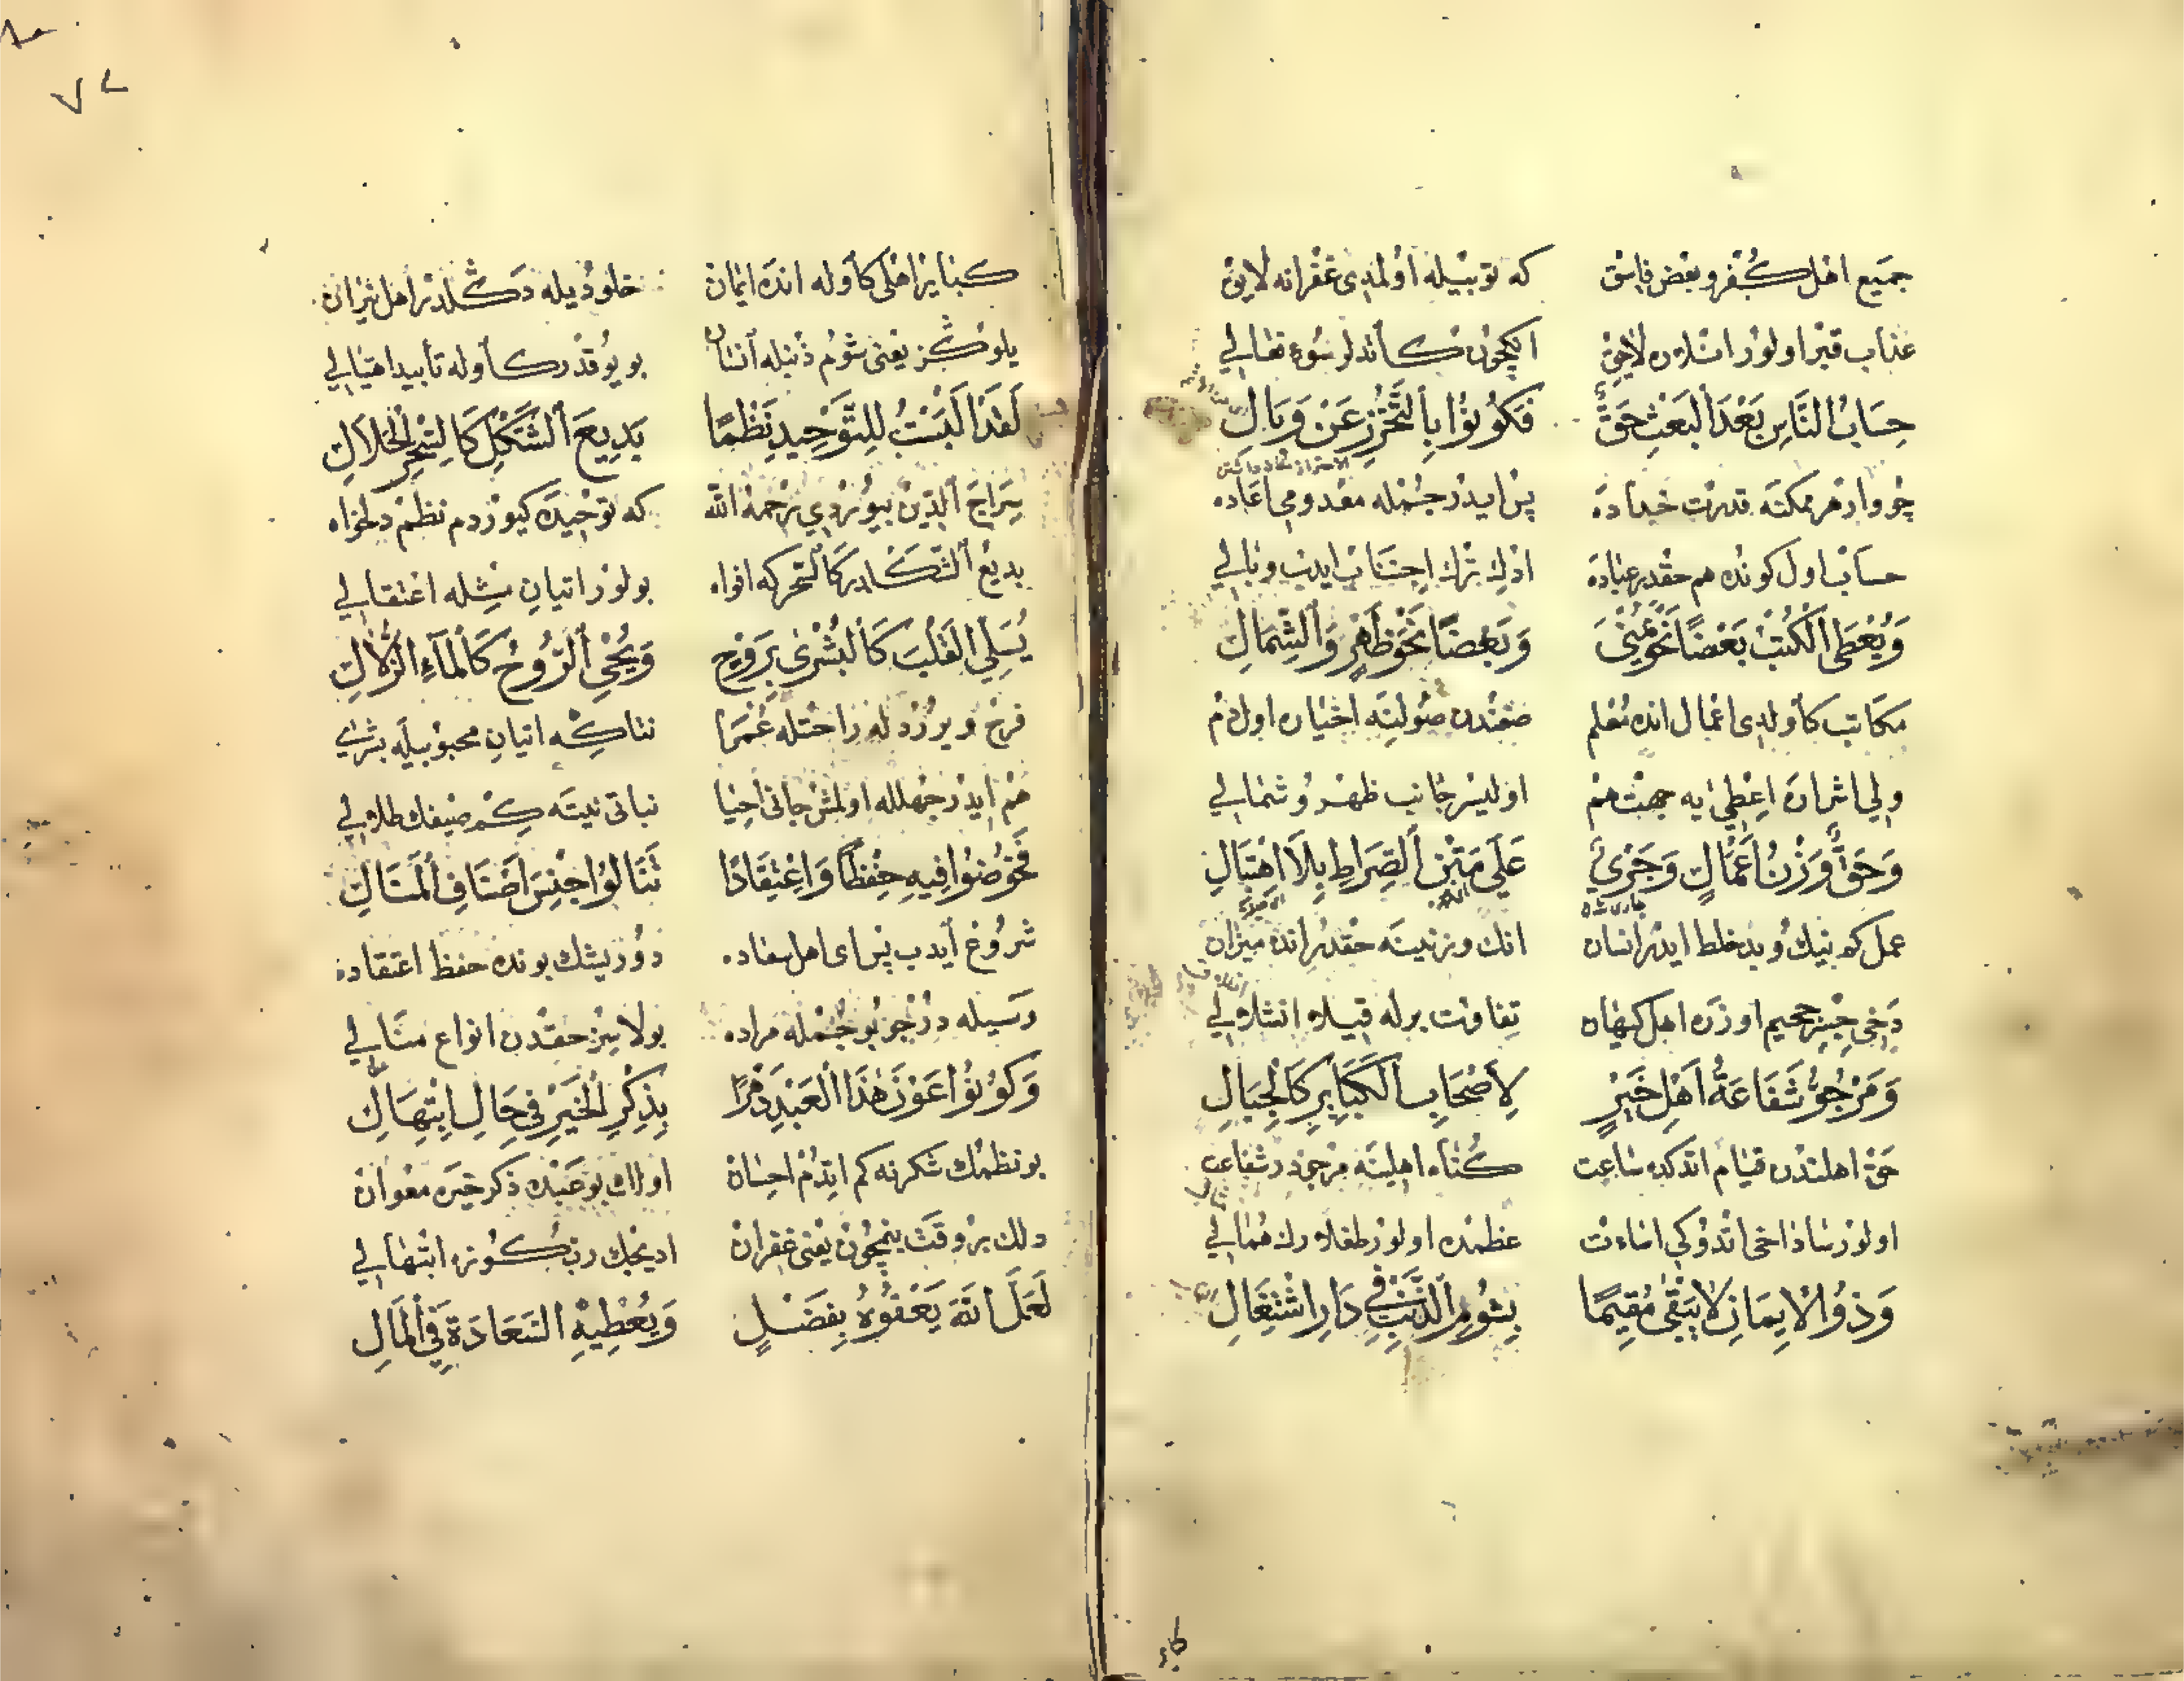 جميع اهل كفر و بعض فاسق كه توبيله اولمدى غفرانه لايق
عذاب قبر اولور انلاره لاحق انكچون كاتدلر سوء فعالي
حِسَابُ النَّاسِ بَعْدَ الْبَعْثِ حَقٌّ فَكُونُوا بِالتَّحَرُّزِ عَنْ وَبَالِ
چو واردر ممكنه قدرت خداده پس ايدر جمله معدومى اعاده
حساب اول كونده هم حقدر عباده اڭ ترك اجتناب ايدب وبالي
وَيُعْطَى الْكُتْبُ بَعْضًا نَحْوَ يُمْنَى وَبَعْضًا نَحْوَ ظَهْرٍ وَالشِّمَالِ
مكاتب كاولدى اعمال انده معلم صغندن صولينه اخياره اول دم
ولي اشراره اعطي ايه جهت هم اوليسر جانب ظهر و شمالي
وَحَقٌّ وَزْنُ أَعْمَالٍ وَجَرْيٌ عَلَى مَتْنِ الصِّرَاطِ بِلَا اهْتِبَالِ
عمل كم نيك و بد خلط ايدر انسان انك وزنينه حقدر انده ميزان
دخى جسر جحيم اوزره اهل كيهان تفاوت برله قيلاه انتقالي
وَمَرْجُوٌّ شَفَاعَةُ أَهْلِ خَيْرٍ لِأَصْحَابِ الْكَبَائِرِ كَالْجِبَالِ
حق اهلندن قيام اتدكده ساعت كناه اهلينه مرجو در شفاعت
اولورسا داخى اتدوكى اساءت عظمده اولور طغلارك مثالي
وَذُو الْإِيمَانِ لَا يَبْقَى مُقِيمًا بِشُومِ الذَّنْبِ فِي دَارِ اشْتِعَالِ
كباير اهلى كاوله انده ايمان خلود يله دكلدر اهل نيران
يلوكز يعنى شوم ذنبله انسان بو يوقدر كاوله تأبيدا
لَقَدْ أَلْبَسْتُ لِلتَّوْحِيدِ نَظْمًا بَدِيعَ الشَّكْلِ كَالسِّحْرِ الْحَلَالِ
سراج الدين بيوردي رحمه الله كه توحيده كيوردم نظم دلخواه
بديع الشكلدر كالسحر كه افواه بولور اتيان مثله اعتقالي
يُسَلِّي الْقَلْبَ كَالْبُشْرَى بِرَوْحٍ وَيُحْيِي الرُّوحَ كَالْمَاءِ الزُّلَالِ
فرح ويرر دله راحتله عمرا نتاكه اتيان محبوبيله بشرى
هم ايدر جهلله اولمش جانى احيا نباتى نيته كم صيفك طلالي
فَخُوضُوا فِيهِ حِفْظًا وَاعْتِقَادًا تَنَالُوا جِنْسَ أَصْنَافِ الْمَنَالِ
شروع ايدب پس اى اهل سعاده دورشك بونده حفظ اعتقاده
وسيله در چو بو جمله مراده بولاسز حقدن انواع منالي
وَكُونُوا عَوْنَ هَذَا الْعَبْدِ دَهْرًا بِذِكْرِ الْخَيْرِ فِي حَالِ ابْتِهَالِ
بو نظمك شكرنه كم ايتدم احسان اولك بو عبده ذكر خيره معوان
دلك بر وقت بنمچون يعنى غفران ايديجك رب كونه ابتهالي
لَعَلَّ اللهَ يَعْفُوهُ بِفَضْلٍ وَيُعْطِيهِ السَّعَادَةَ فِي الْمَآلِ